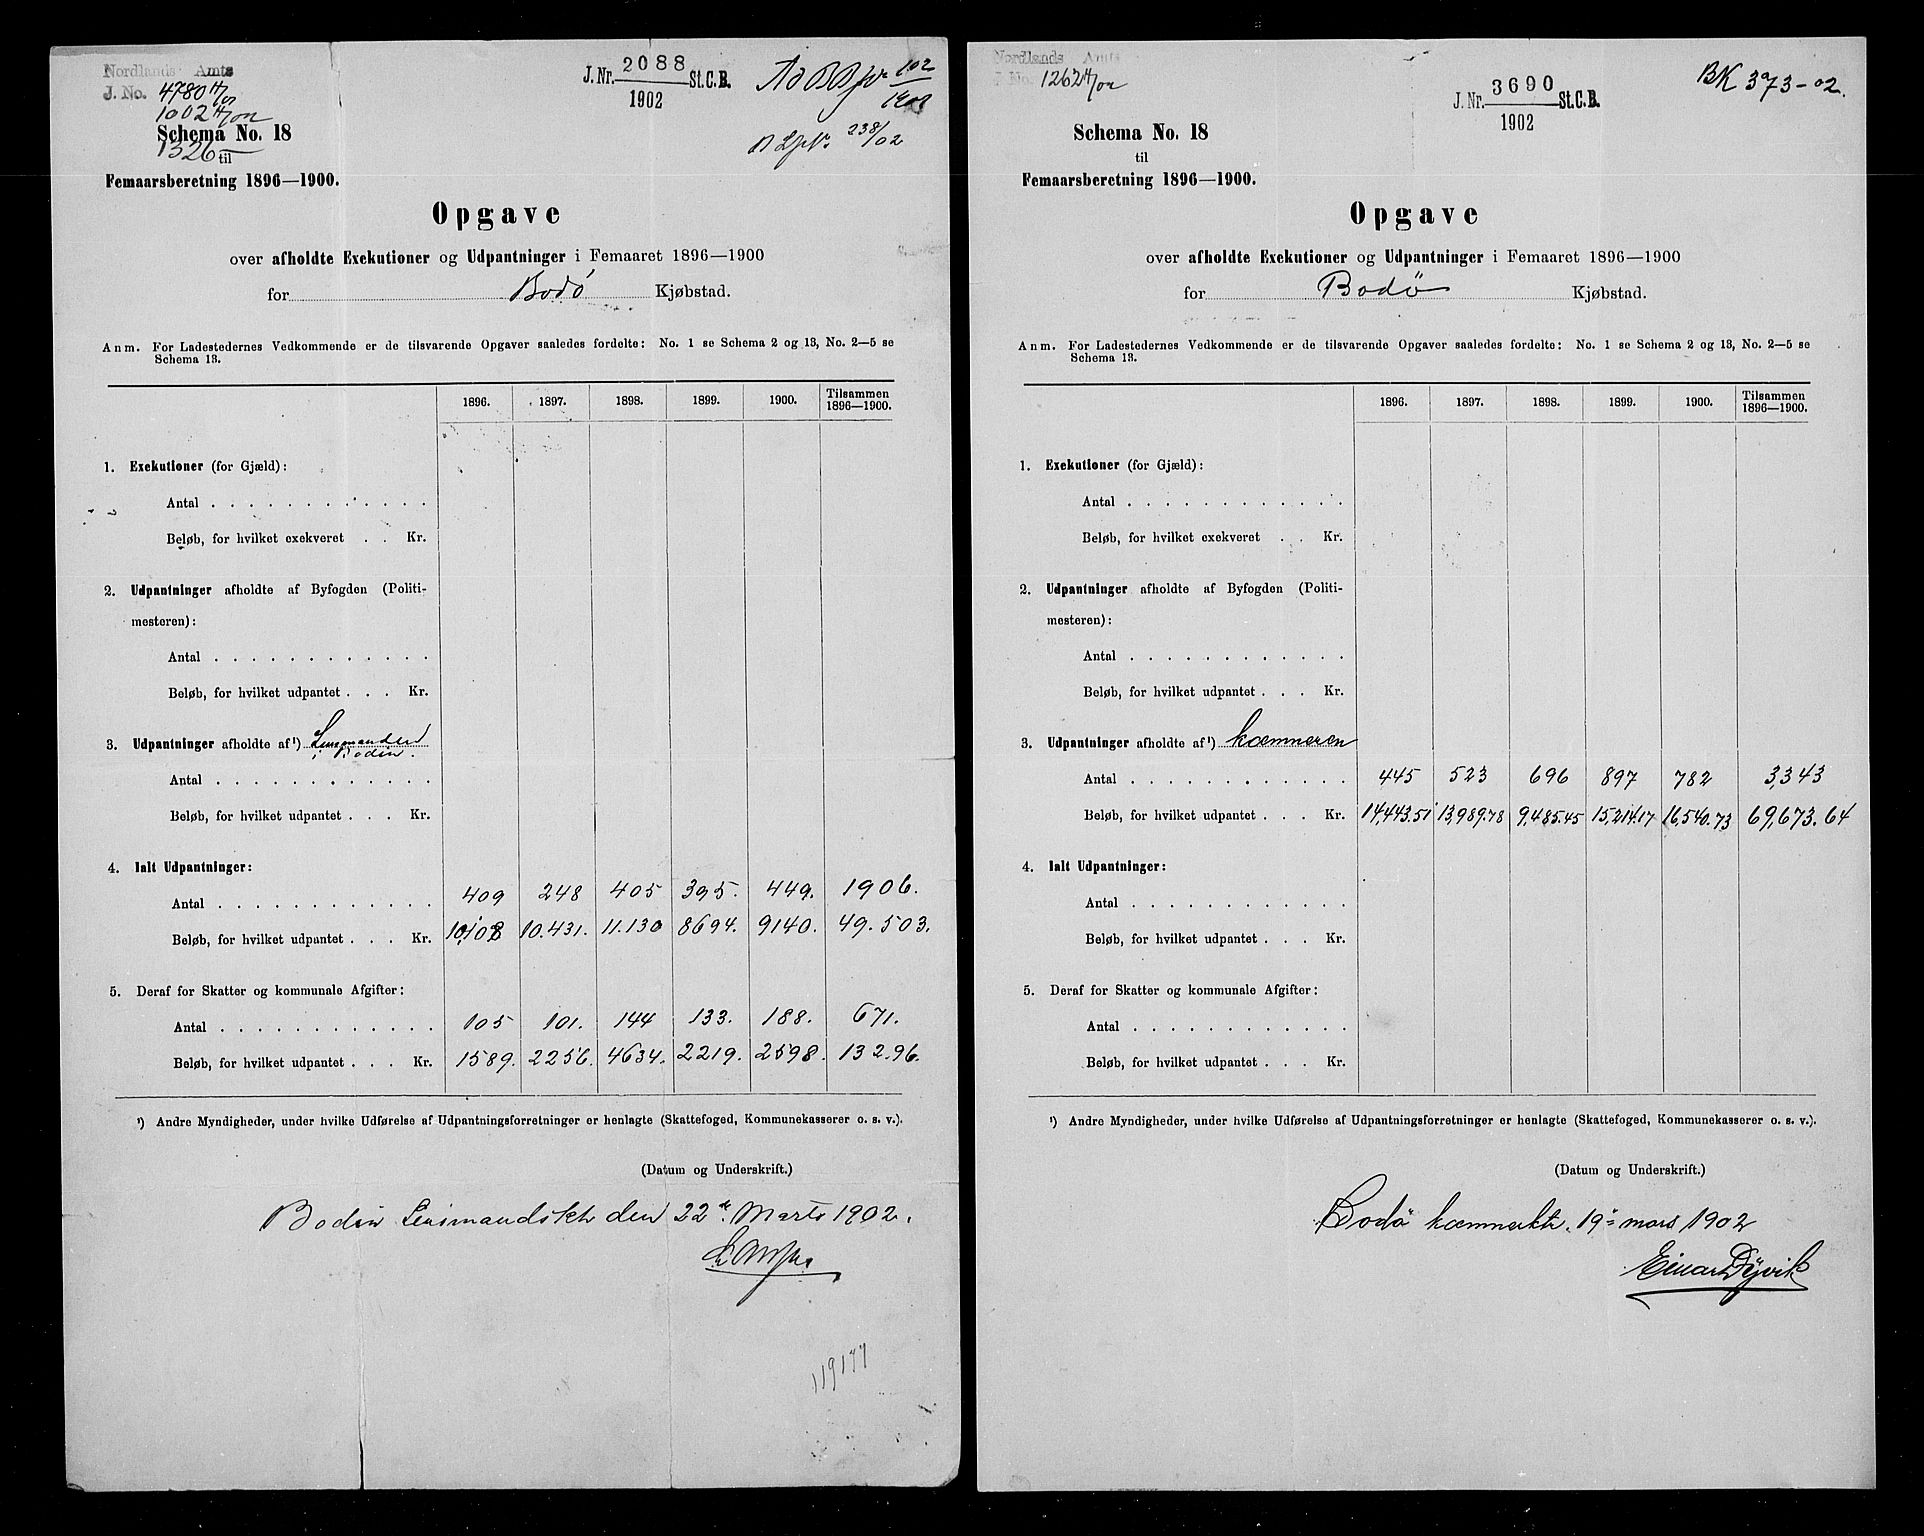 Nordlands Amts
J. No. 4780
1002
1326
J. Nr. 2088 St. C. B.
1902
102
238/02
Schema No. 18
til
Femaarsberetning 1896—1900.
Opgave
over afholdte Exekutioner og Udpantninger i Femaaret 1896—1900
for Bodø Kjøbstad.
Anm. For Ladestedernes Vedkommende er de tilsvarende Opgaver saaledes fordelte: No. 1 se Schema 2 og 13, No. 2—5 se
Schema 13.
1896. 1897. 1898. 1899. 1900. Tilsammen 1896—1900.
1. Exekutioner (for Gjæld):
Antal . . . . . . . . . . . .
Beløb, for hvilket exekveret . . Kr.
2. Udpantninger afholdte af Byfogden (Politi-
mesteren):
Antal . . . . . . . . . . . .
Beløb, for hvilket udpantet . . . Kr.
3. Udpantninger afholdte af ¹) Lensmanden
i Bodin.
Antal . . . . . . . . . . . .
Beløb, for hvilket udpantet . . . Kr.
4. Ialt Udpantninger:
Antal . . . . . . . . . . . . 409 248 405 395. 449. 1906.
Beløb, for hvilket udpantet . . . Kr. 10,108 10.431. 11.130 8694. 9140. 49.503.
5. Deraf for Skatter og kommunale Afgifter:
Antal . . . . . . . . . . . . 105 101. 144 133. 188. 671.
Beløb, for hvilket udpantet . . . Kr. 1589. 2256. 4634. 2219. 2598. 132.96.
¹) Andre Myndigheder, under hvilke Udførelse af Udpantningsforretninger er henlagte (Skattefoged, Kommunekasserer o. s. v.).
(Datum og Underskrift.)
Bodin Lensmandskt den 22de Marts 1902.
119177
Nordlands Amts
J. No. 1262 4/02
J. Nr. 3690 St. C. B.
1902
BK 373-02.
Schema No. 18
til
Femaarsberetning 1896—1900.
Opgave
over afholdte Exekutioner og Udpantninger i Femaaret 1896—1900
for Bodø Kjøbstad.
Anm. For Ladestedernes Vedkommende er de tilsvarende Opgaver saaledes fordelte: No. 1 se Schema 2 og 13, No. 2—5 se
Schema 13.
1896. 1897. 1898. 1899. 1900. Tilsammen 1896—1900.
1. Exekutioner (for Gjæld):
Antal . . . . . . . . . . . .
Beløb, for hvilket exekveret . . Kr.
2. Udpantninger afholdte af Byfogden (Politi-
mesteren):
Antal . . . . . . . . . . . .
Beløb, for hvilket udpantet . . . Kr.
3. Udpantninger afholdte af ¹) kæmneren
Antal . . . . . . . . . . . . 445 523 696 897 782 3,343
Beløb, for hvilket udpantet . . . Kr. 14,443.51 13,989.78 9,485.45 15,214.17 16,540.73 69,673.64
4. Ialt Udpantninger:
Antal . . . . . . . . . . . .
Beløb, for hvilket udpantet . . . Kr.
5. Deraf for Skatter og kommunale Afgifter:
Antal . . . . . . . . . . . .
Beløb, for hvilket udpantet . . . Kr.
¹) Andre Myndigheder, under hvilke Udførelse af Udpantningsforretninger er henlagte (Skattefoged, Kommunekasserer o. s. v.).
(Datum og Underskrift.)
Bodø kæmnerkt. 19de mars 1902
Einar Dyvik